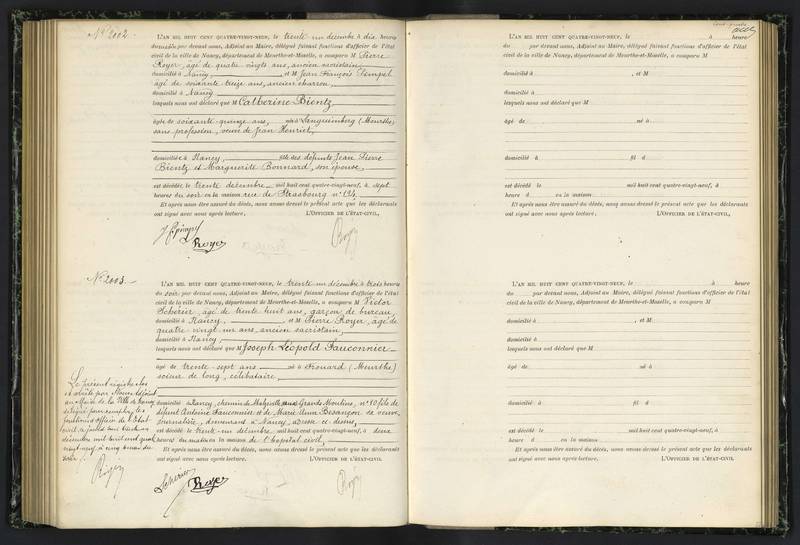 N° 2002.
L'AN MIL HUIT CENT QUATRE-VINGT-NEUF, le trente un décembre à dix heures
du matin par devant nous, Adjoint au Maire, délégué faisant fonctions d'officier de l'état
civil de la ville de Nancy, département de Meurthe-et-Moselle, a comparu M Pierre
Royer, âgé de quatre vingts ans, ancien sacristain,
domicilié à Nancy, et M Jean François Tempel
âgé de soixante treize ans, ancien charron,
domicilié à Nancy
lesquels nous ont déclaré que M Catherine Bientz
âgée de soixante quinze ans, née à Languimberg (Meurthe)
sans profession, veuve de Jean Henriet,
domiciliée à Nancy, fille des défunts Jean Pierre
Bientz et Marguerite Bonnard, son épouse,
est décédée, le trente décembre mil huit cent quatre-vingt-neuf, à sept
heures du soir en la maison rue de Strasbourg n° 124,
Et après nous être assuré du décès, nous avons dressé le présent acte que les déclarants
ont signé avec nous après lecture. L'OFFICIER DE L'ÉTAT-CIVIL,
Royer
N° 2003.
L'AN MIL HUIT CENT QUATRE-VINGT-NEUF, le trente un décembre à trois heures
du soir par devant nous, Adjoint au Maire, délégué faisant fonctions d'officier de l'état
civil de la ville de Nancy, département de Meurthe-et-Moselle, a comparu M Victor
Schérier, âgé de trente huit ans, garçon de bureau,
domicilié à Nancy, et M Pierre Royer, âgé de
quatre vingt un ans, ancien sacristain,
domicilié à Nancy
lesquels nous ont déclaré que M Joseph Léopold Fauconnier
âgé de trente-sept ans né à Frouard (Meurthe)
scieur de long, célibataire,
domicilié à Nancy, chemin de Malzéville aux Grands Moulins, n° 10 fils de
défunt Antoine Fauconnier et de Marie Anne Besançon sa veuve,
journalière, demeurant à Nancy, adresse ci dessus,
est décédé le trente-un décembre mil huit cent quatre-vingt-neuf, à deux
heures du matin en la maison de l'hôpital civil,
Et après nous être assuré du décès, nous avons dressé le présent acte que les déclarants
ont signé avec nous après lecture. L'OFFICIER DE L'ÉTAT-CIVIL
Le présent registre clos
et arrêté par Nous, Adjoint
au Maire de la Ville de Nancy
délégué pour remplir les
fonctions d'officier de l'Etat
civil, aujourd'hui trente un
décembre mil huit cent quatre
vingt neuf à cinq heures du
soir.
Schérier
Royer
L'AN MIL HUIT CENT QUATRE-VINGT-NEUF, le à heure
du par devant nous, Adjoint au Maire, délégué faisant fonctions d'officier de l'état
civil de la ville de Nancy, département de Meurthe-et-Moselle, a comparu M
domicilié à , et M
domicilié à
lesquels nous ont déclaré que M
âgé de né à
domicilié à fil d
est décédé le mil huit cent quatre-vingt-neuf, à
heure d en la maison
Et après nous être assuré du décès, nous avons dressé le présent acte que les déclarants
ont signé avec nous après lecture. L'OFFICIER DE L'ÉTAT-CIVIL,
L'AN MIL HUIT CENT QUATRE-VINGT-NEUF, le à heure
du par devant nous, Adjoint au Maire, délégué faisant fonctions d'officier de l'état
civil de la ville de Nancy, département de Meurthe-et-Moselle, a comparu M
domicilié à , et M
domicilié à
lesquels nous ont déclaré que M
âgé de né à
domicilié à fil d
est décédé le mil huit cent quatre-vingt-neuf, à
heure d en la maison
Et après nous être assuré du décès, nous avons dressé le présent acte que les déclarants
ont signé avec nous après lecture. L'OFFICIER DE L'ÉTAT-CIVIL